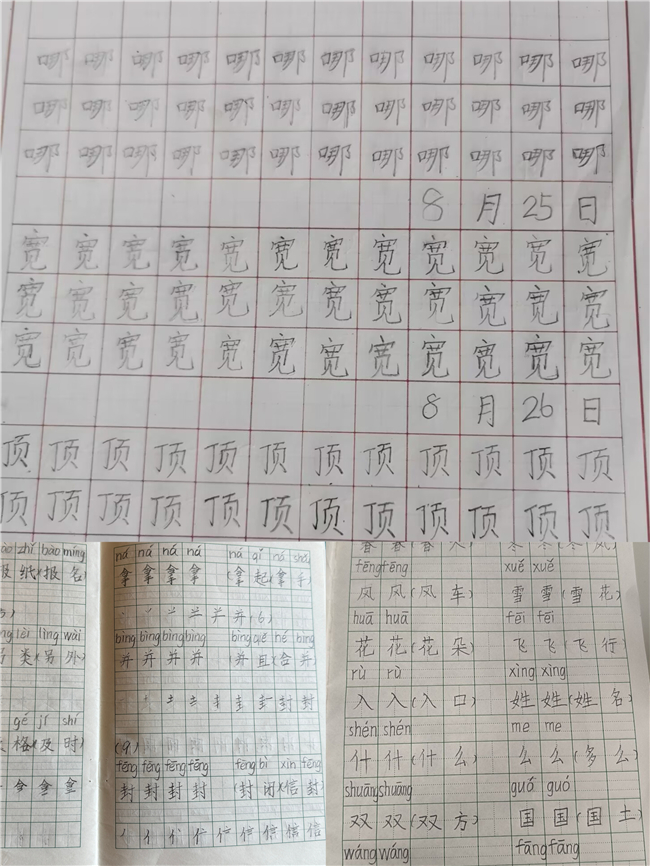 哪哪哪哪哪哪哪哪哪哪哪哪
哪哪哪哪哪哪哪哪哪哪哪哪
哪哪哪哪哪哪哪哪哪哪哪哪
8月25日
宽宽宽宽宽宽宽宽宽宽宽宽
宽宽宽宽宽宽宽宽宽宽宽宽
宽宽宽宽宽宽宽宽宽宽宽宽
8月26日
顶顶顶顶顶顶顶顶顶顶顶顶
顶顶顶顶顶顶顶顶顶顶顶顶
zhǐ bào míng
纸(报名)
lèi lìng wài
类(另外)
gé jí shí
格(及时)
拿 拿 拿
ná ná ná ná ná qǐ ná
拿 拿 拿 拿 (拿起)(拿手)
并(6)
bìng bìng bìng bìng bìng qiě hé bìng
并 并 并 并 (并且)(合并)
封 封
(9)
fēng fēng fēng fēng fēng bì xìn fēng
封 封 封 封 (封闭)(信封)
信 信 信
fēng fēng xuě xuě
风 风(风车) 雪 雪(雪花)
huā huā fēi fēi
花 花(花朵) 飞 飞(飞行)
rù rù xìng xìng
入 入(入口) 姓 姓(姓名)
shén shén me me
什 什(什么) 么 么(多么)
shuāng shuāng guó guó
双 双(双方) 国 国(国土)
wáng wáng fāng fāng